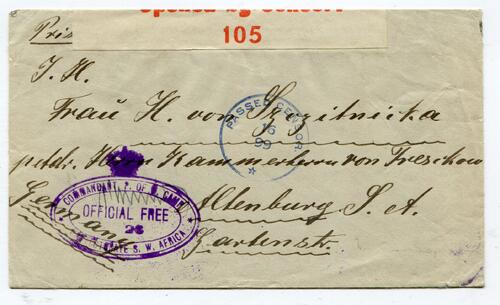 Opened by Censor.
105
Pris
I. H.
Frau H. von
PASSED CENSOR.
16
99
Herrn Kammerherrn von Treskow
Germany
Altenburg S. A.
Gartenstr.
COMMANDANT P. OF W. CAMP
OFFICIAL FREE
26
S. W. AFRICA